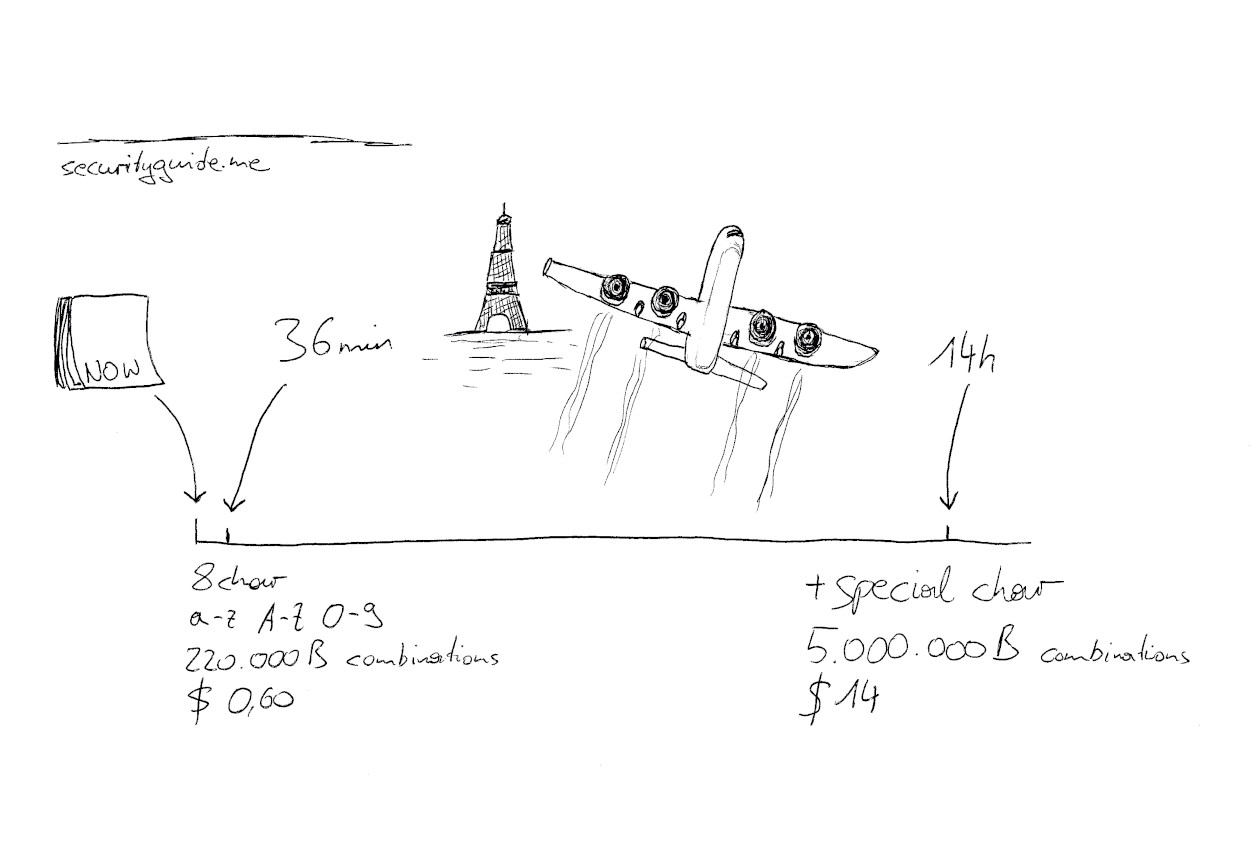 securityguide.me
NOW
36min
14h
8char
a-z A-Z 0-9
220.000B combinations
$ 0,60
+ special char
5.000.000B combinations
$ 14